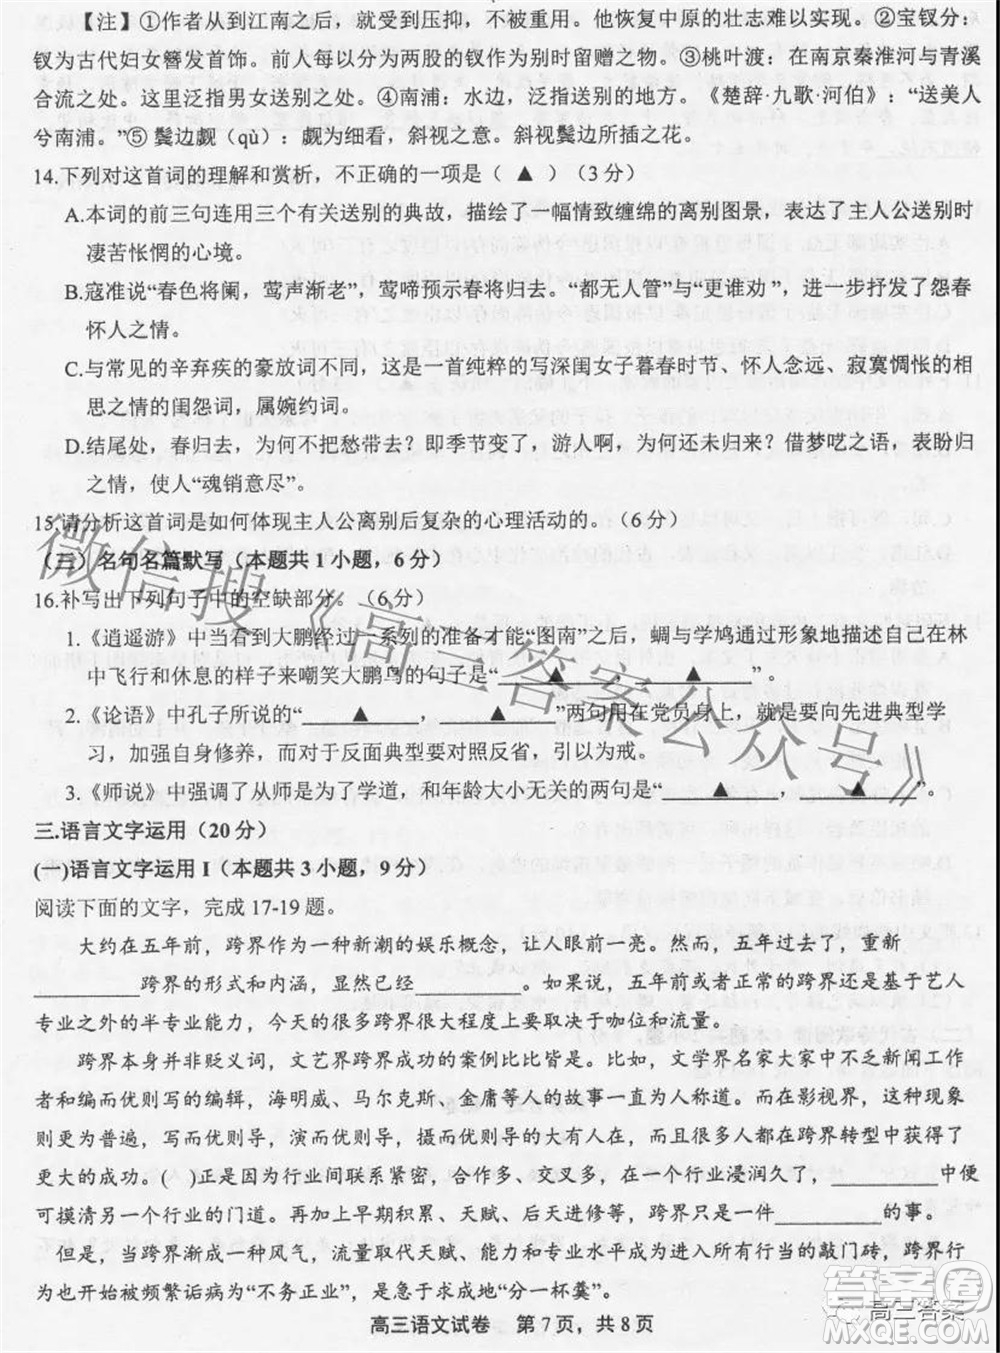 【注】①作者从到江南之后，就受到压抑，不被重用。他恢复中原的壮志难以实现。②宝钗分：
钗为古代妇女簪发首饰。前人每以分为两股的钗作为别时留赠之物。③桃叶渡：在南京秦淮河与青溪
合流之处。这里泛指男女送别之处。④南浦：水边，泛指送别的地方。《楚辞·九歌·河伯》：“送美人
兮南浦。”⑤ 鬓边觑（qù）：觑为细看，斜视之意。斜视鬓边所插之花。
14.下列对这首词的理解和赏析，不正确的一项是（ ▲ ）（3 分）
A.本词的前三句连用三个有关送别的典故，描绘了一幅情致缠绵的离别图景，表达了主人公送别时
凄苦怅惘的心境。
B.寇准说“春色将阑，莺声渐老”，莺啼预示着春将归去。“都无人管”与“更谁劝”，进一步抒发了怨春
怀人之情。
C.与常见的辛弃疾的豪放词不同，这是一首纯粹的写深闺女子暮春时节、怀人念远、寂寞惆怅的相
思之情的闺怨词，属婉约词。
D.结尾处，春归去，为何不把愁带去？即季节变了，游人啊，为何还未归来？借梦呓之语，表盼归
之情，使人“魂销意尽”。
15.请分析这首词是如何体现主人公离别后复杂的心理活动的。（6 分）
（三）名句名篇默写（本题共 1 小题，6 分）
16.补写出下列句子中的空缺部分。（6分）
1.《逍遥游》中当看到大鹏经过一系列的准备才能“图南”之后，蜩与学鸠通过形象地描述自己在林
中飞行和休息的样子来嘲笑大鹏鸟的句子是“____▲____，____▲____”。
2.《论语》中孔子所说的“____▲____，____▲____”两句用在党员身上，就要向先进典型学
习，加强自身修养，而对于反面典型要对照反省，引以为戒。
3.《师说》中强调了从师是为了学道，和年龄大小无关的两句是“____▲____，____▲____”。
三.语言文字运用（20 分）
(一)语言文字运用 I（本题共 3 小题，9 分）
阅读下面的文字，完成 17-19 题。
大约在五年前，跨界作为一种新潮的娱乐概念，让人眼前一亮。然而，五年过去了，重新
________跨界的形式和内涵，显然已经________。究其原因，五年前或者正常的跨界还是基于艺人
专业之外的半专业能力，今天的很多跨界很大程度上要取决于咖位和流量。
跨界本身并非贬义词，文艺界跨界成功的案例比比皆是。比如，文学界名家大家中不乏新闻工作
者和编而优则写的编辑，海明威、马尔克斯、金庸等人的故事一直为人称道。而在影视界，这种现象
则更为普遍，写而优则导、演而优则导、摄而优则导的大有人在，而且大多数人在跨界转型中获得了
更大的成功。(　)正是因为行业间联系紧密，合作多、交流多，一些人在一个行业浸润久了，________中便
可摸清另一个行业的门道。再加上早期积累、天赋、后天进修等，跨界只是一件________的事。
但是，当跨界渐成一种风气，流量取代天赋、能力和专业水平成为进入所有行当的敲门砖，跨界行
为也开始被频繁诟病为“不务正业”，是急于求成地“分一杯羹”。
高三语文试卷　第 7 页，共 8 页
微信搜《高三答案公众号》
答案圈
高三答案